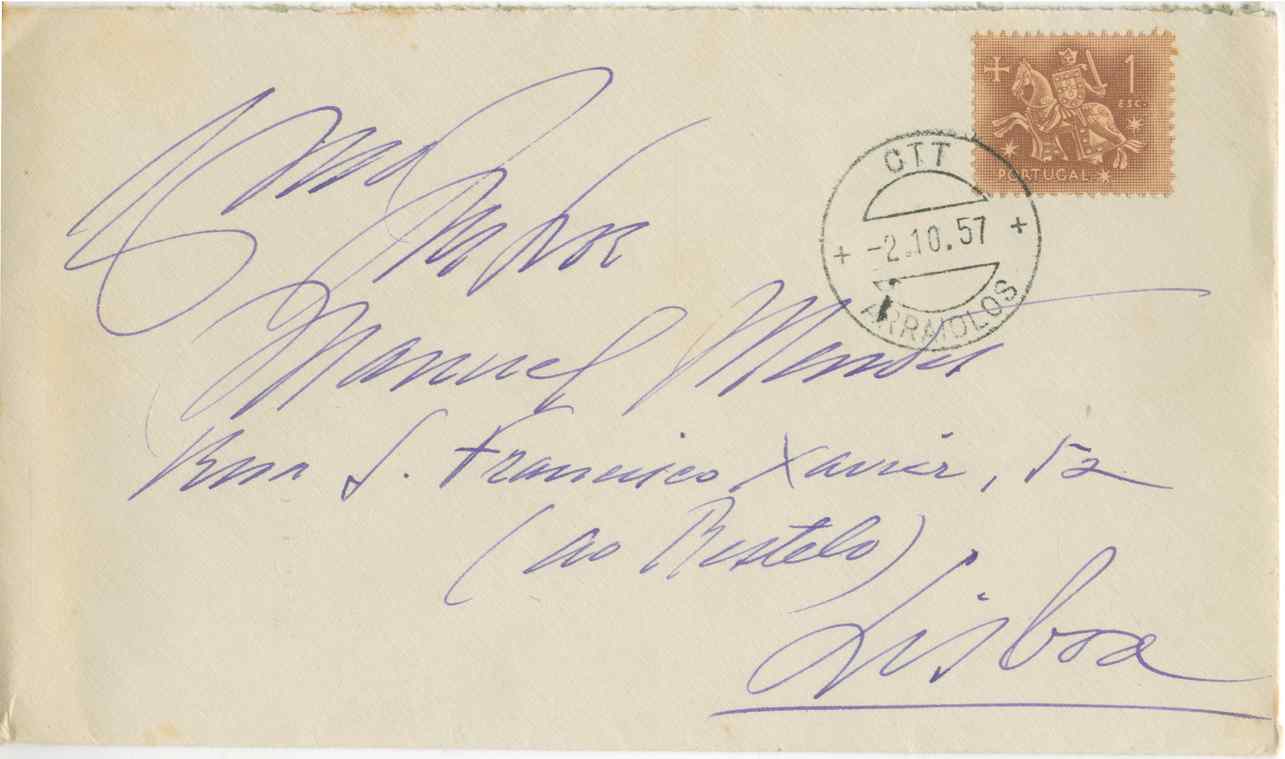 1
ESC.
PORTUGAL
CTT
-2.10.57
ARRAIOLOS
Exmo
Senhor
Manuel Mendes
Rua S. Francisco Xavier, 52
(ao Restelo)
Lisboa